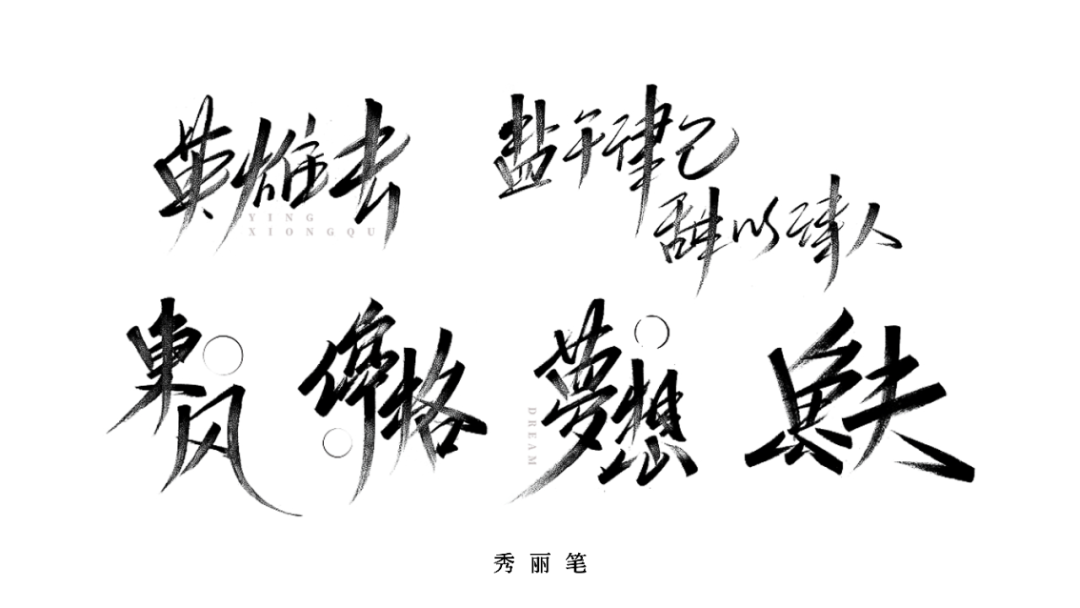 英雄去
YING
XIONGQU
盐于律己
甜以待人
東风
停格
夢想
DREAM
秀丽笔